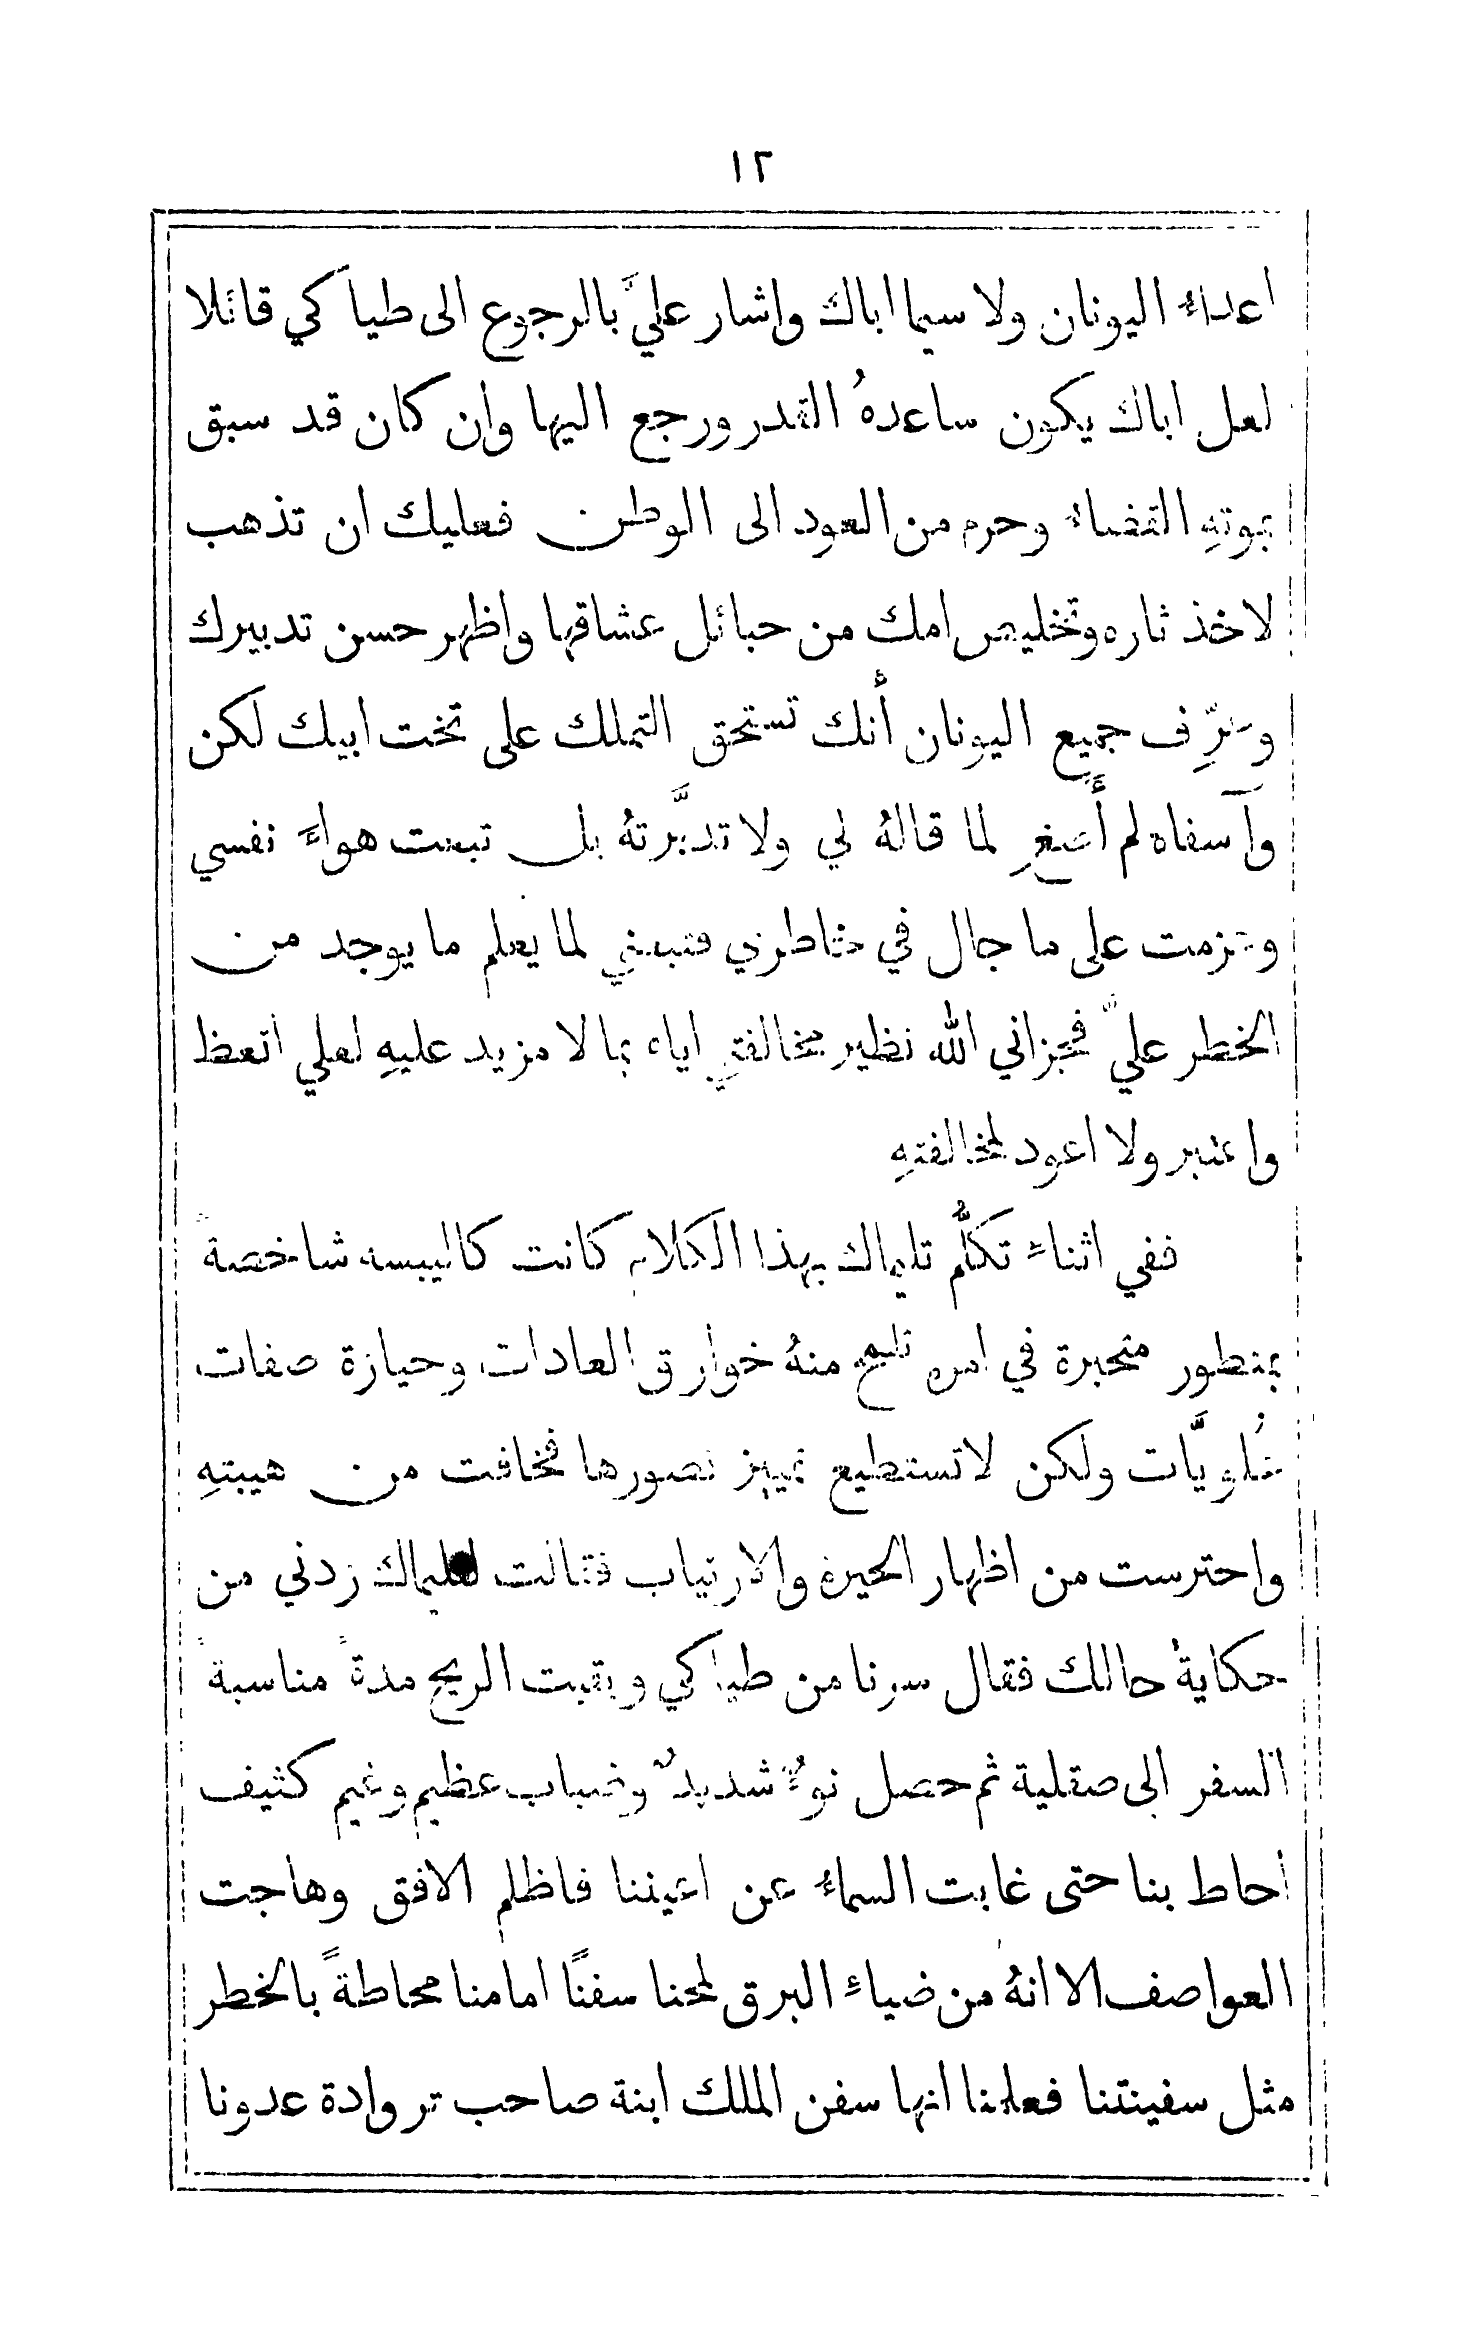 ١٢
اعداءُ اليونان ولا سيما اباك واشار عليَّ بالرجوع الى طياكي قائلا
لعل اباك يكون ساعدهُ القدر ورجع اليها وان كان قد سبق
بموتهِ القضاءُ وحرم من العود الى الوطن فعليك ان تذهب
لاخذ ثاره وتخليص امك من حبائل عشاقها واظهر حسن تدبيرك
وعرِّف جميع اليونان أنك تستحق التملك على تخت ابيك لكن
وآسفاه لم أُصغِ لما قالهُ لي ولا تدبَّرتهُ بل تبعت هواءَ نفسي
وعزمت على ما جال في خاطري فتبعني لما يعلم ما يوجد من
الخطر عليَّ فجزاني الله نظير مخالفتي اياه بما لا مزيد عليهِ لعلي اتعظ
واعتبر ولا اعود لمخالفتهِ
ففي اثناءِ تكلُّم تليماك بهذا الكلام كانت كاليبسه شاخصةً
بمنطور متحيرة في امره تلمح منهُ خوارق العادات وحيازة صفات
عُلويَّات ولكن لا تستطيع تمييز تصورها فخافت من هيبتهِ
واحترست من اظهار الحيرة والارتياب فقالت لتليماك زدني من
حكاية حالك فقال سرنا من طياكي وبقيت الريح مدةً مناسبةً
السفر الى صقلية ثم حصل نوءٌ شديدٌ وضباب عظيم وغيم كثيف
أحاط بنا حتى غابت السماءُ عن اعيننا فاظلم الافق وهاجت
العواصف الا انهُ من ضياءِ البرق لمحنا سفنًا امامنا محاطةً بالخطر
مثل سفينتنا فعلمنا انها سفن الملك ابنة صاحب تروادة عدونا